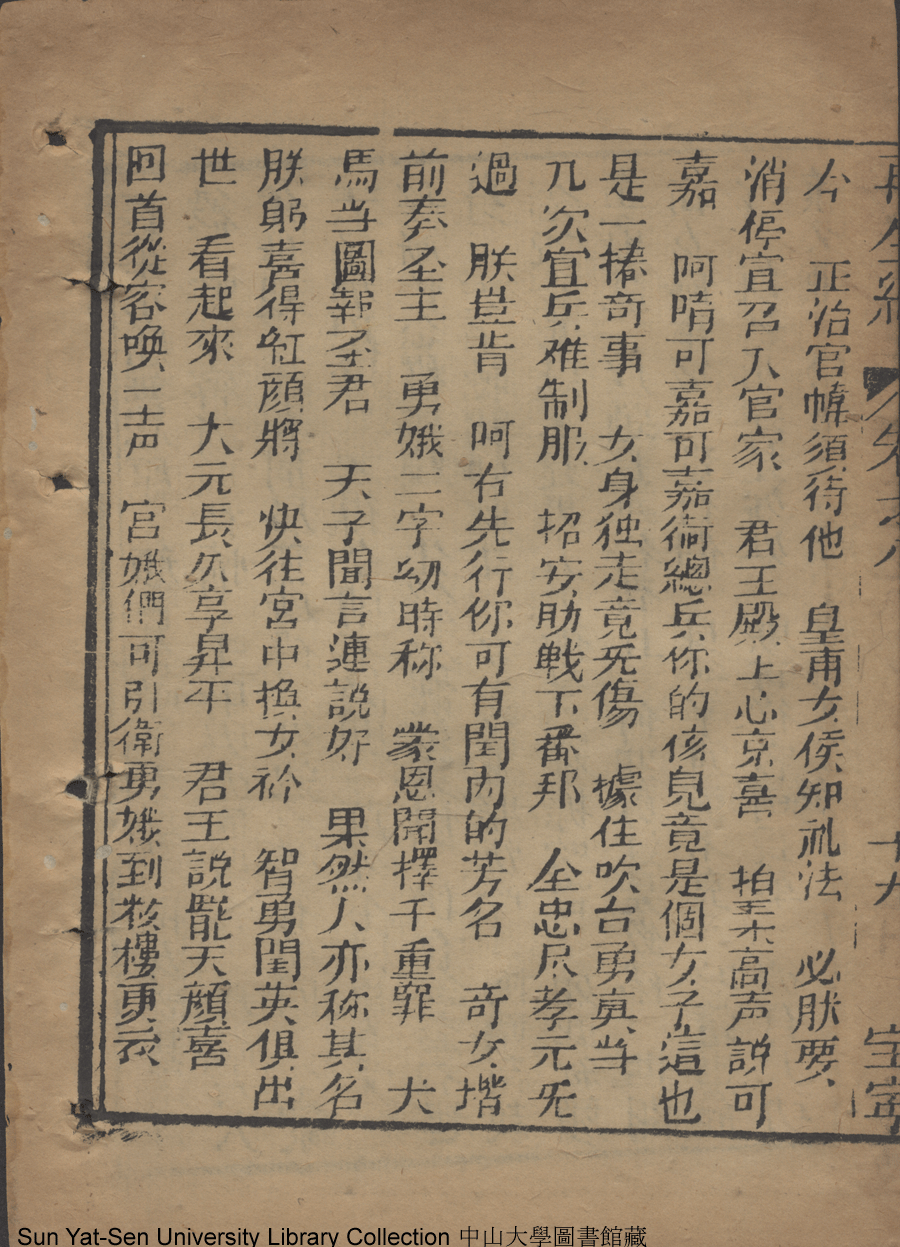 再生緣 卷六 十九
今 正治官幃須待他 皇甫女侯知礼法 必朕要
消停宜召入官家 君王殿上心京喜 拍案高声説可
嘉 呵隋可嘉可嘉衛總兵你的侅兒竟是個女子這也
是一椿奇事 女身独走竟旡傷 據住吹台勇真当
几次宜兵难制服 招安助戦下番邦 全忠尽孝元旡
過 朕豈肯 呵右先行你可有閨内的芳名 奇女堦
前奏圣主 勇娥二字幼時称 蒙恩開擇千重罪 犬
馬当圖報圣君 天子聞言連説好 果然人亦称其名
朕躬喜得紅顔將 快往宮中換女衫 智勇閨英俱出
世 看起來 大元長久享昇平 君王説罷天顔喜
回首從容喚一声 宮娥們可引衛勇娥到粧樓更衣
Sun Yat-Sen University Library Collection 中山大學圖書館藏